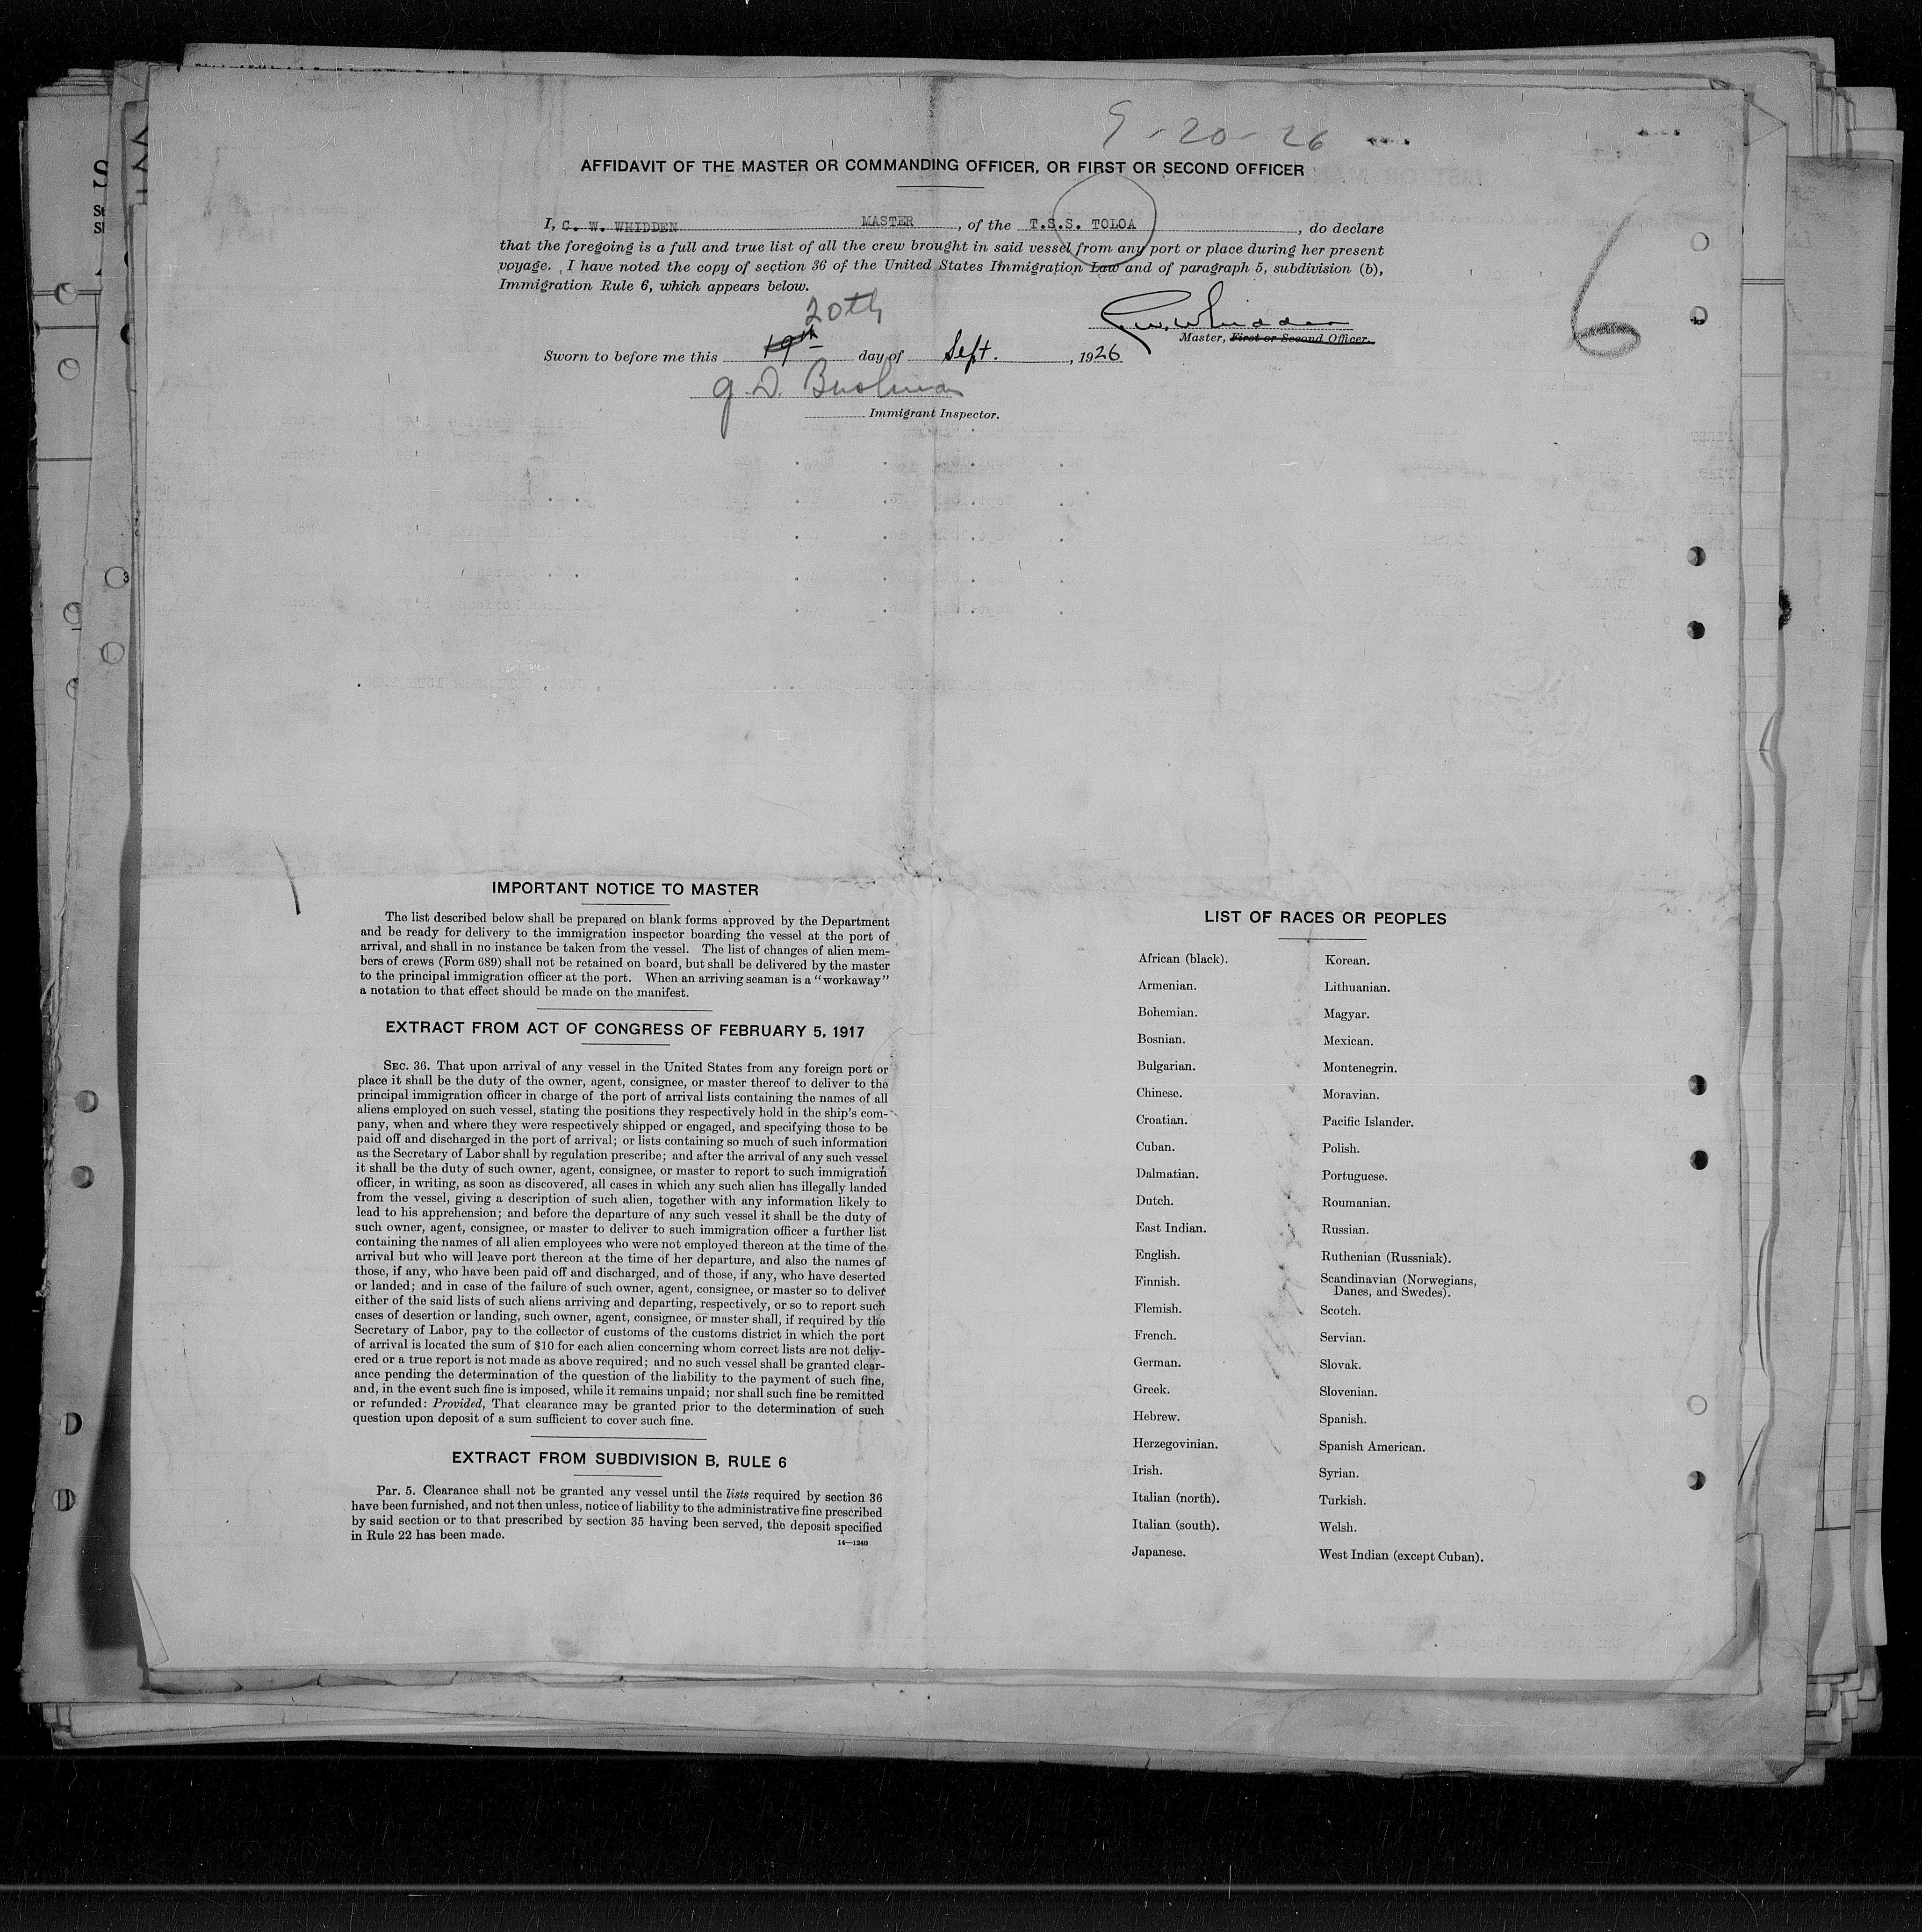 9-20-26
AFFIDAVIT OF THE MASTER OR COMMANDING OFFICER, OR FIRST OR SECOND OFFICER
I, C. W. WHIDDEN MASTER, of the T.S.S. TOLOA, do declare
that the foregoing is a full and true list of all the crew brought in said vessel from any port or place during her present
voyage. I have noted the copy of section 36 of the United States Immigration Law and of paragraph 5, subdivision (b),
Immigration Rule 6, which appears below.
6
20th
C. W. Whidden
Master, First or Second Officer.
Sworn to before me this 19th day of Sept., 1926
Immigrant Inspector.
IMPORTANT NOTICE TO MASTER
The list described below shall be prepared on blank forms approved by the Department
and be ready for delivery to the immigration inspector boarding the vessel at the port of
arrival, and shall in no instance be taken from the vessel. The list of changes of alien mem-
bers of crews (Form 689) shall not be retained on board, but shall be delivered by the master
to the principal immigration officer at the port. When an arriving seaman is a "workaway"
a notation to that effect should be made on the manifest.
EXTRACT FROM ACT OF CONGRESS OF FEBRUARY 5, 1917
SEC. 36. That upon arrival of any vessel in the United States from any foreign port or
place it shall be the duty of the owner, agent, consignee, or master thereof to deliver to the
principal immigration officer in charge of the port of arrival lists containing the names of all
aliens employed on such vessel, stating the positions they respectively hold in the ship's com-
pany, when and where they were respectively shipped or engaged, and specifying those to be
paid off and discharged in the port of arrival; or lists containing so much of such information
as the Secretary of Labor shall by regulation prescribe; and after the arrival of any such vessel
it shall be the duty of such owner, agent, consignee, or master to report to such immigration
officer, in writing, as soon as discovered, all cases in which any such alien has illegally landed
from the vessel, giving a description of such alien, together with any information likely to
lead to his apprehension; and before the departure of any such vessel it shall be the duty of
such owner, agent, consignee, or master to deliver to such immigration officer a further list
containing the names of all alien employees who were not employed thereon at the time of the
arrival but who will leave port thereon at the time of her departure, and also the names of
those, if any, who have been paid off and discharged, and of those, if any, who have deserted
or landed; and in case of the failure of such owner, agent, consignee, or master so to deliver
either of the said lists of such aliens arriving and departing, respectively, or so to report such
cases of desertion or landing, such owner, agent, consignee, or master shall, if required by the
Secretary of Labor, pay to the collector of customs of the customs district in which the port
of arrival is located the sum of $10 for each alien concerning whom correct lists are not deliv-
ered or a true report is not made as above required; and no such vessel shall be granted clear-
ance pending the determination of the question of the liability to the payment of such fine,
and, in the event such fine is imposed, while it remains unpaid; nor shall such fine be remitted
or refunded: Provided, That clearance may be granted prior to the determination of such
question upon deposit of a sum sufficient to cover such fine.
EXTRACT FROM SUBDIVISION B, RULE 6
Par. 5. Clearance shall not be granted any vessel until the lists required by section 36
have been furnished, and not then unless, notice of liability to the administrative fine prescribed
by said section or to that prescribed by section 35 having been served, the deposit specified
in Rule 22 has been made.
14—1240
LIST OF RACES OR PEOPLES
African (black).
Armenian.
Bohemian.
Bosnian.
Bulgarian.
Chinese.
Croatian.
Cuban.
Dalmatian.
Dutch.
East Indian.
English.
Finnish.
Flemish.
French.
German.
Greek.
Hebrew.
Herzegovinian.
Irish.
Italian (north).
Italian (south).
Japanese.
Korean.
Lithuanian.
Magyar.
Mexican.
Montenegrin.
Moravian.
Pacific Islander.
Polish.
Portuguese.
Roumanian.
Russian.
Ruthenian (Russniak).
Scandinavian (Norwegians,
Danes, and Swedes).
Scotch.
Servian.
Slovak.
Slovenian.
Spanish.
Spanish American.
Syrian.
Turkish.
Welsh.
West Indian (except Cuban).